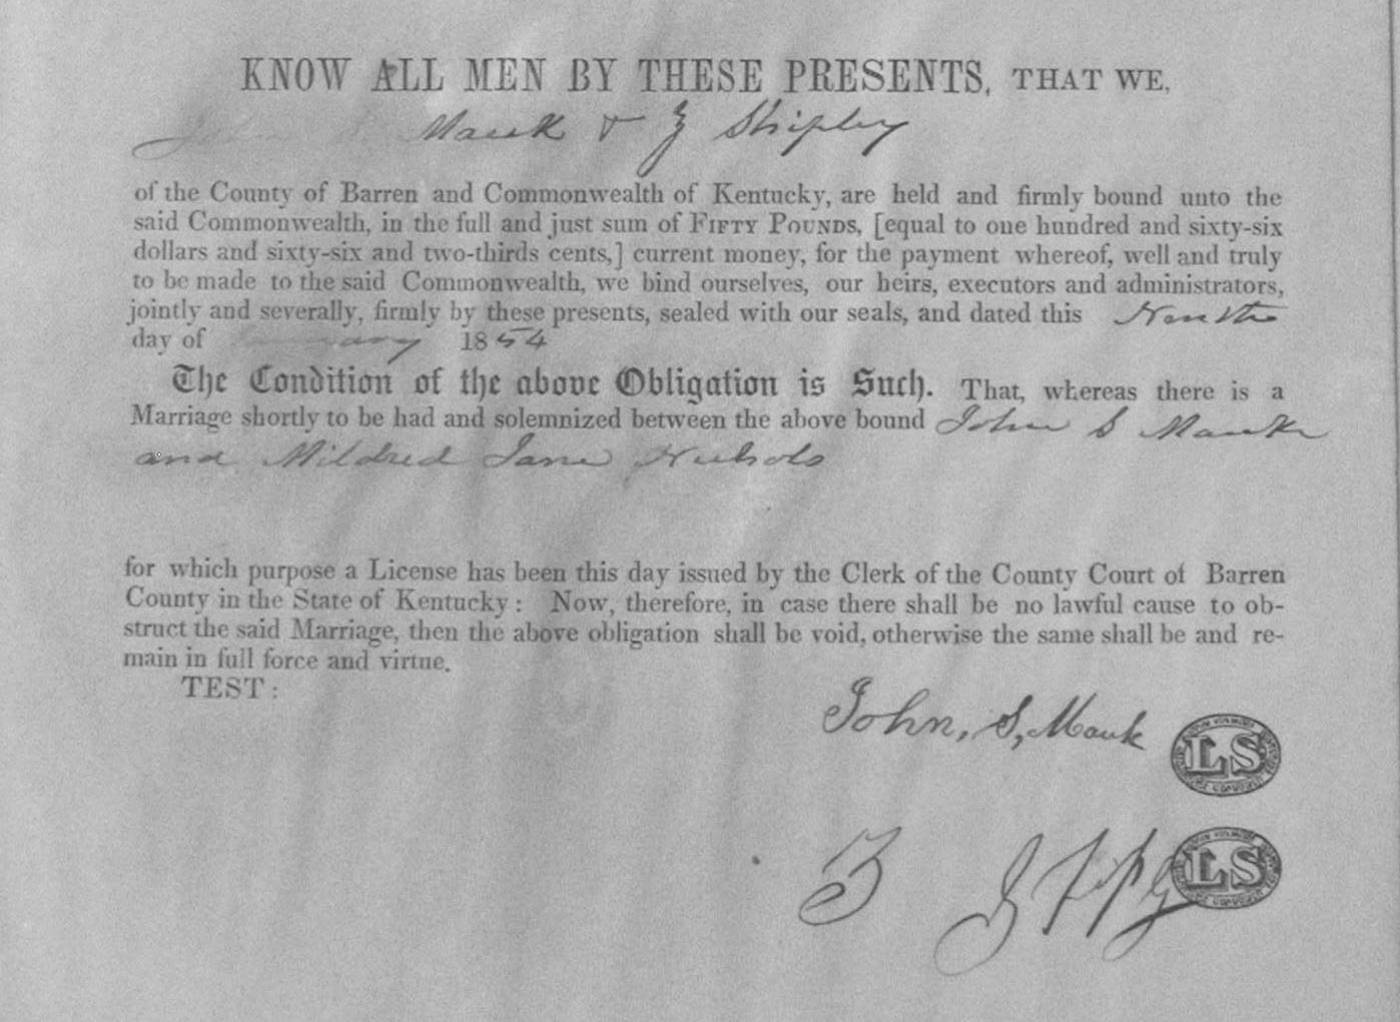 KNOW ALL MEN BY THESE PRESENTS, THAT WE,
John S Mauk & Z Shipley
of the County of Barren and Commonwealth of Kentucky, are held and firmly bound unto the
said Commonwealth, in the full and just sum of FIFTY POUNDS, [equal to one hundred and sixty-six
dollars and sixty-six and two-thirds cents,] current money, for the payment whereof, well and truly
to be made to the said Commonwealth, we bind ourselves, our heirs, executors and administrators,
jointly and severally, firmly by these presents, sealed with our seals, and dated this
day of January 1854
The Condition of the above Obligation is Such. That, whereas there is a
Marriage shortly to be had and solemnized between the above bound John S Mauk
and Mildred Jane Nichols
for which purpose a License has been this day issued by the Clerk of the County Court of Barren
County in the State of Kentucky: Now, therefore, in case there shall be no lawful cause to ob-
struct the said Marriage, then the above obligation shall be void, otherwise the same shall be and re-
main in full force and virtue.
TEST:
John, S, Mauk
LS
LS